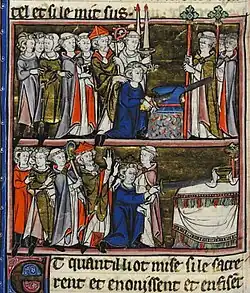 tel et si le mit sus.
Et quant il lot mise si le sacre
rent et enoinssent et en firent